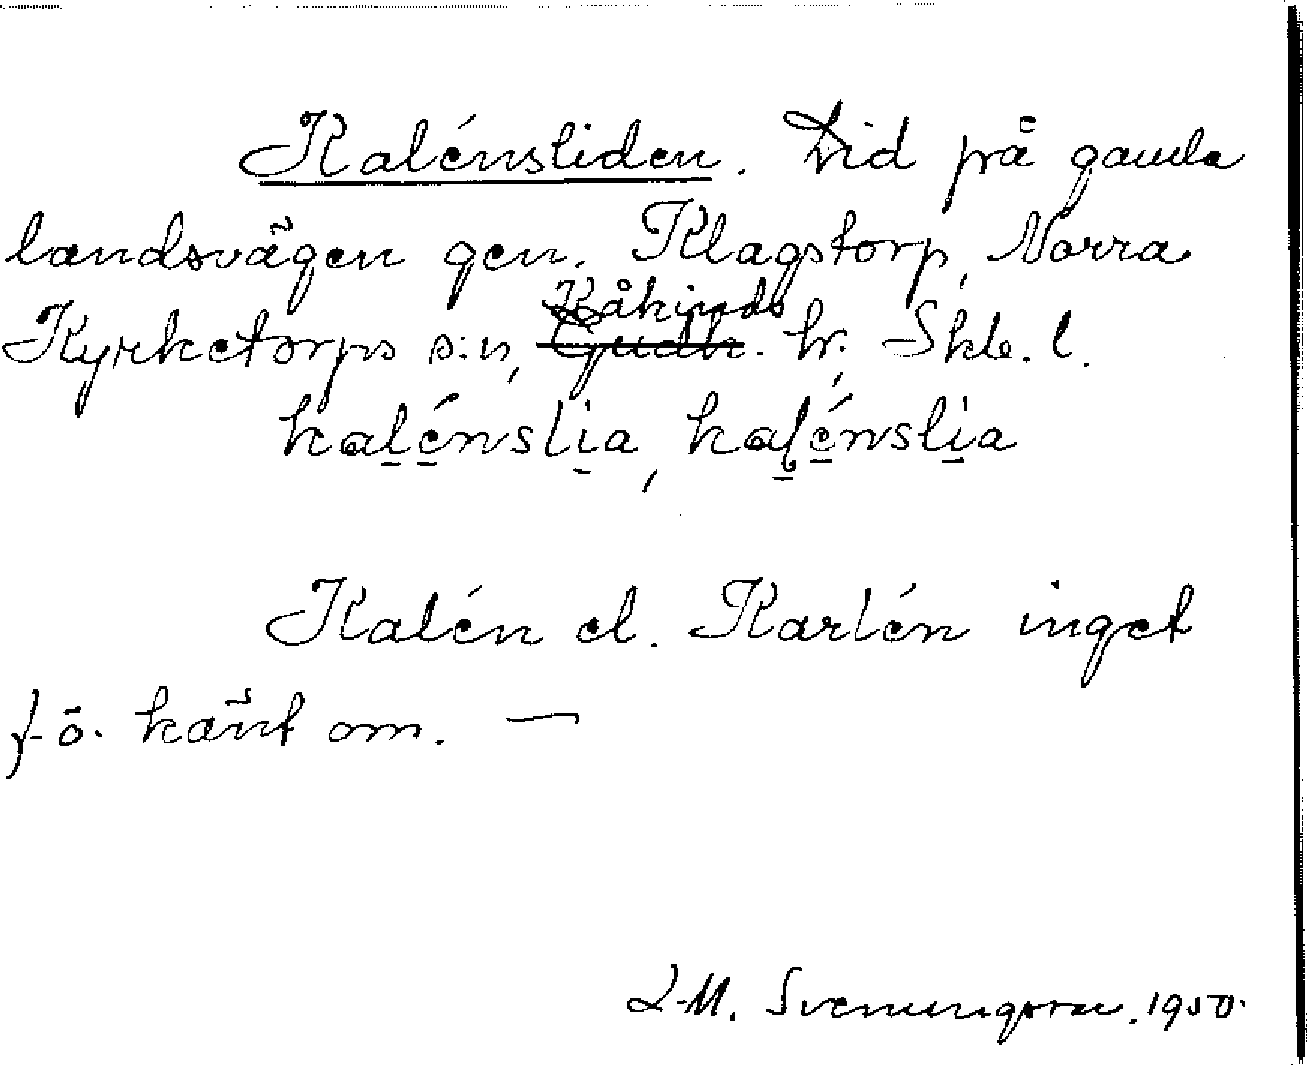 Kalénsliden. Lid på gamla
landsvägen gen. Klagstorp, Norra
Kåkinds
Kyrketorps s:n, Gudh. hr. Skb. l.
kalénslia, kalénslia
Kalén el. Karlén inget
f. ö. känt om. —
L-M. Svenungsson. 1950.